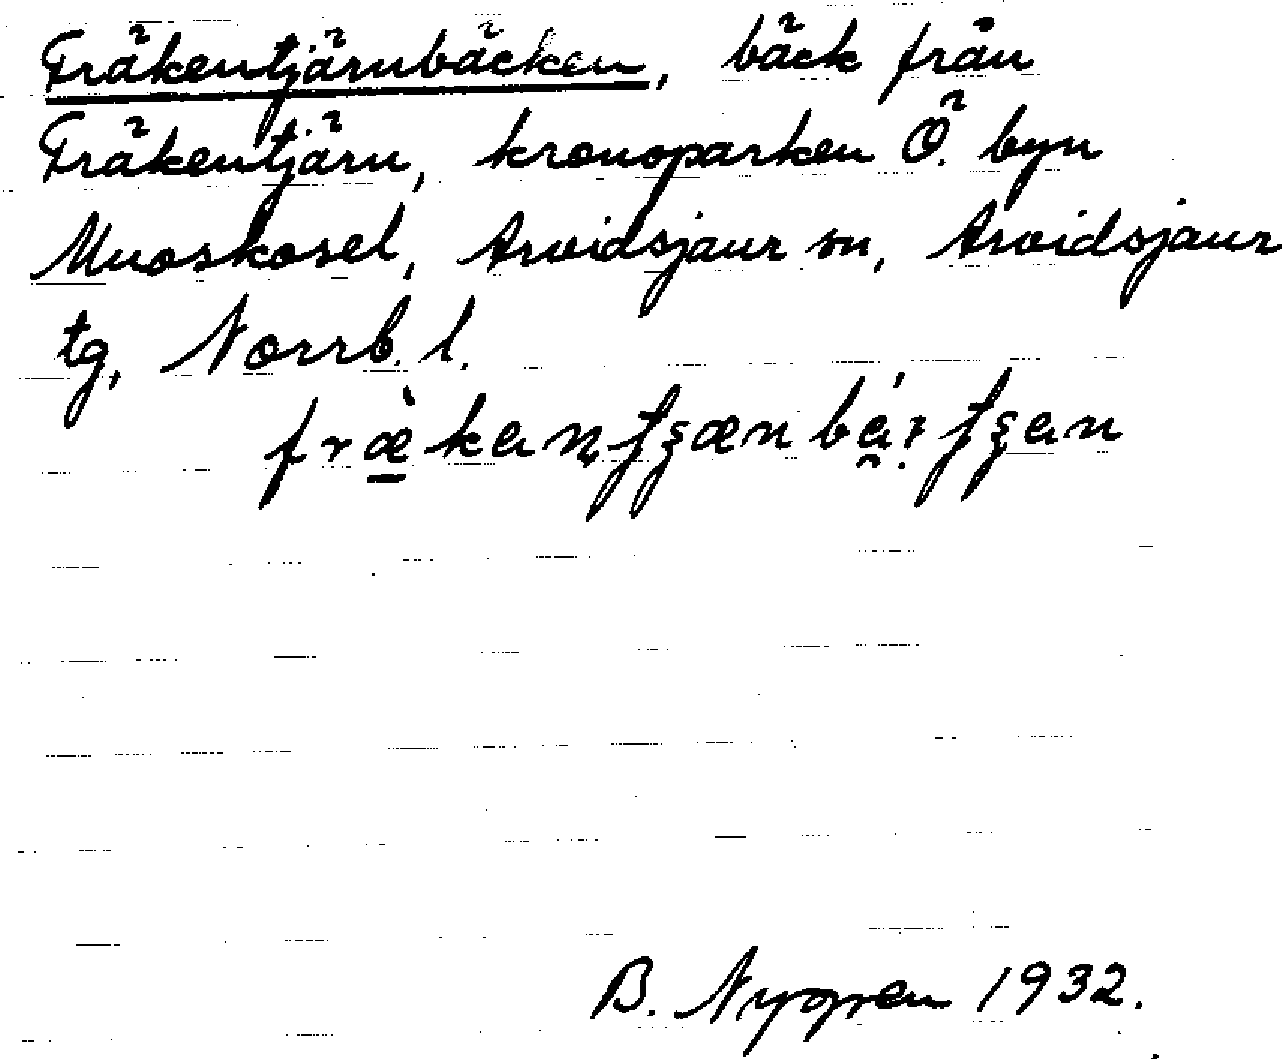 Fräkentjärnbäcken, bäck från
Fräkentjärn, kronoparken Ö. byn
Muoskosel, Arvidsjaur sn, Arvidsjaur
tg, Norrb. l.
B. Nygren 1932.